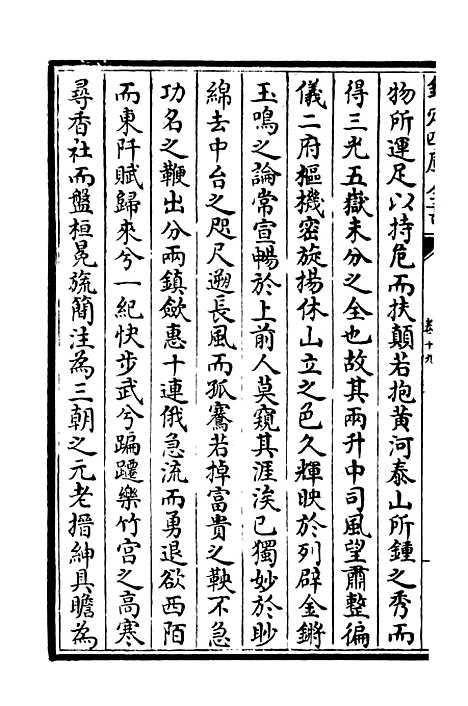 欽定四庫全書
卷十九
物所運足以持危而扶顛若抱黃河泰山所鍾之秀而
得三光五嶽未分之全也故其兩升中司風望肅整徧
儀二府樞機密旋揚休山立之色久輝映於列辟金鏘
玉鳴之論常宣暢於上前人莫窺其涯涘已獨妙於眇
綿去中台之咫尺遡長風而孤騫若掉富貴之鞅不急
功名之鞭出分兩鎮歛惠十連俄急流而勇退欲西陌
而東阡賦歸來兮一紀快步武兮蹁躚樂竹宮之高寒
尋香社而盤桓冕旒簡注為三朝之元老搢紳具瞻為